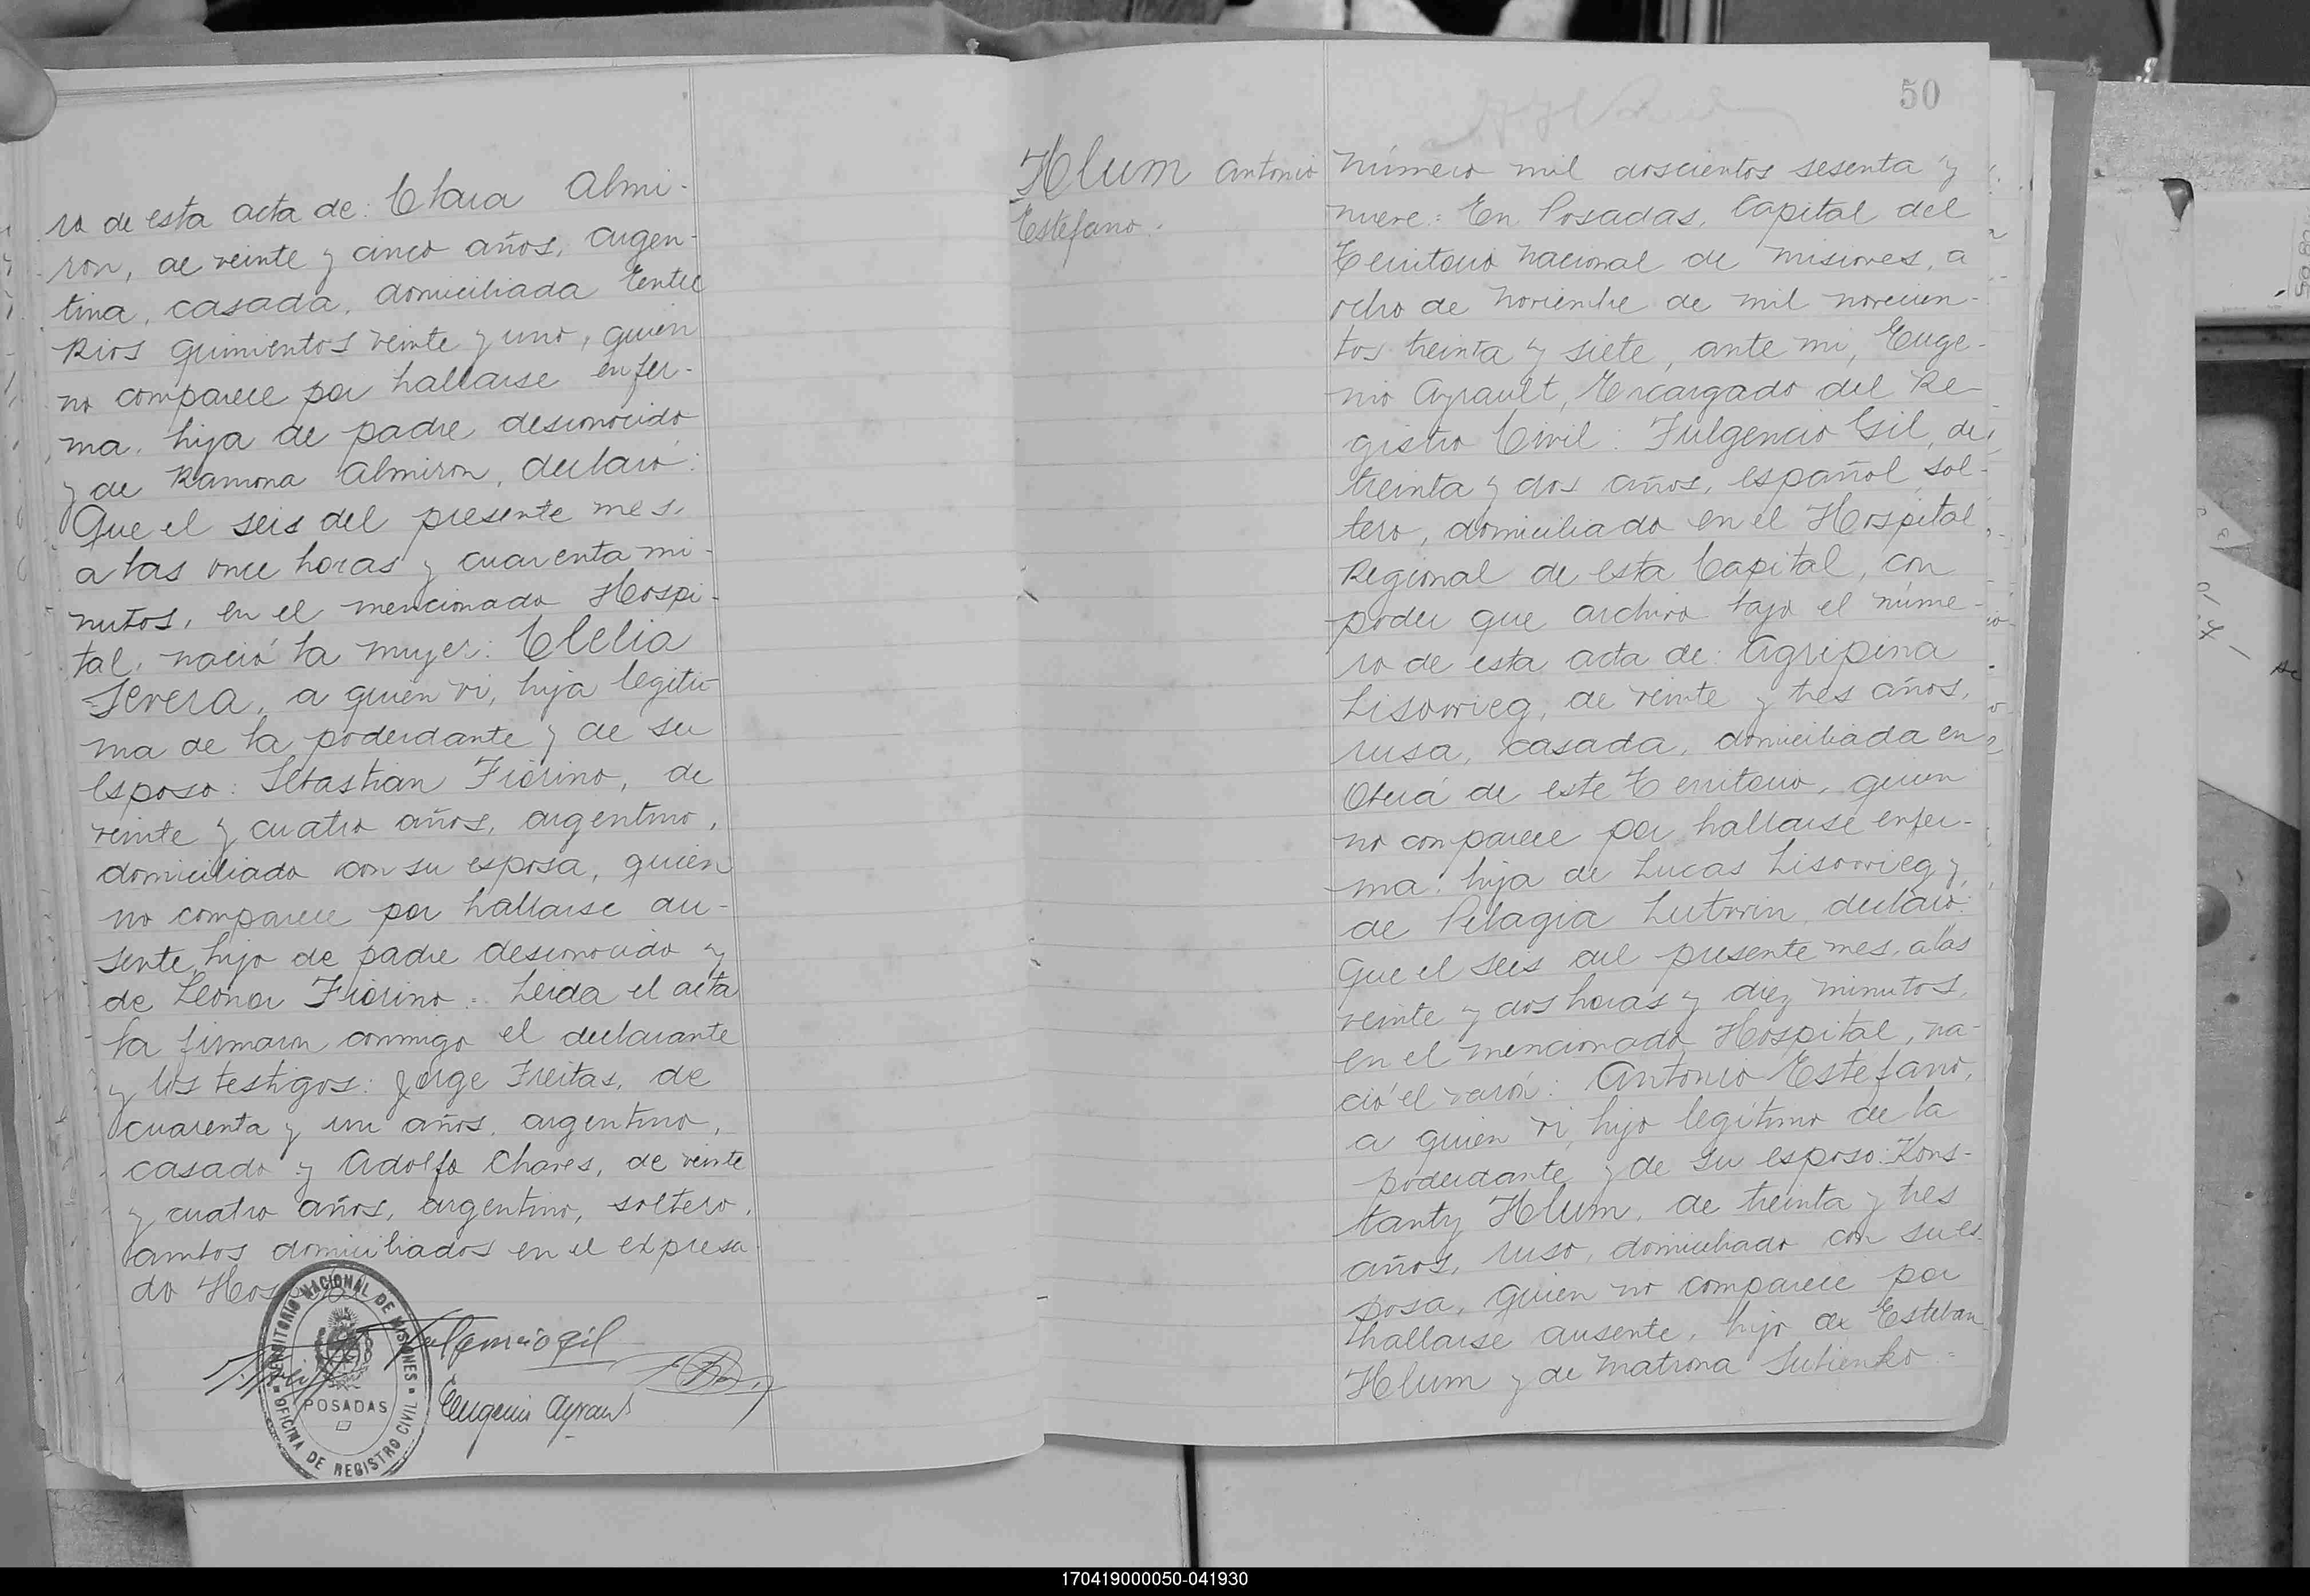 ro de esta acta de: Clara Almi-
ron, de veinte y cinco años, argen-
tina, casada, domiciliada Entre
Rios quinientos veinte y uno, quien
no comparece por hallarse enfer-
ma, hija de padre desconocido
y de Ramona Almiron, declaró:
Que el seis del presente mes,
a las once horas y cuarenta mi-
nutos, en el mencionado Hospi-
tal, nació la mujer: Clelia
Severa, a quien vi, hija legiti-
ma de la poderdante y de su
esposo: Sebastian Fiorino, de
veinte y cuatro años, argentino,
domiciliado con su esposa, quien
no comparece por hallarse au-
sente, hijo de padre desconocido y
de Leonor Fiorino = Leida el acta
la firmaron conmigo el declarante
y los testigos: Jorge Freitas, de
cuarenta y un años, argentino,
casado y Adolfo Chaves, de veinte
y cuatro años, argentino, soltero,
ambos domiciliados en el expresa-
do
Fulgencio Gil
Eugenio Ayrault
TERRITORIO NACIONAL DE MISIONES
POSADAS
OFICINA DE REGISTRO CIVIL
50
Hlum Antonio
Estefano.
Número mil doscientos sesenta y
nueve: En Posadas, Capital del
Territorio Nacional de Misiones, a
ocho de Noviembre de mil novecien-
tos treinta y siete, ante mi, Euge-
nio Ayrault, Encargado del Re-
gistro Civil: Fulgencio Gil, de
treinta y dos años, español, sol-
tero, domiciliado en el Hospital
Regional de esta Capital, con
poder que archivo bajo el núme-
ro de esta acta de: Agripina
Lisovvieg, de veinte y tres años,
rusa, casada, domiciliada en
Oberá de este Territorio, quien
no comparece por hallarse enfer-
ma, hija de Lucas Lisovvieg y
de Pelagia Lutvvin, declaró:
Que el seis del presente mes, a las
veinte y dos horas y diez minutos,
en el mencionado Hospital, na-
ció el varón: Antonio Estefano,
a quien vi, hijo legítimo de la
poderdante y de su esposo: Kons-
tanty Hlum, de treinta y tres
años, ruso, domiciliado con su es-
posa, quien no comparece por
hallarse ausente, hijo de Esteban
Hlum y de Matrona Sutienko =
170419000050-041930